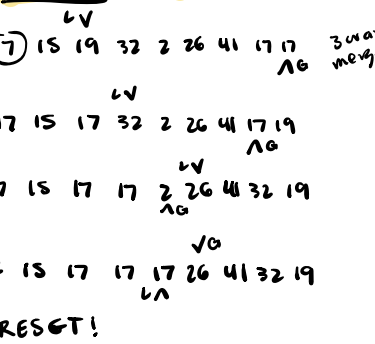 LV
7 15 19 32 2 26 41 17 17 3
ΛG
LV
7 15 17 32 2 26 41 17 19
ΛG
LV
15 17 17 2 26 41 32 19
ΛG
VG
15 17 17 17 26 41 32 19
LΛ
RESET!